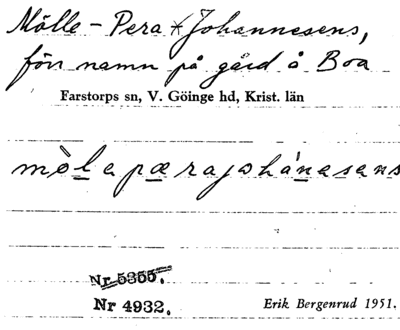 Mölle-Pera Johannesens,
förr namn på gård å Boa
Farstorps sn, V. Göinge hd, Krist. län
mòlapærajohánasans
Nr 5355.
Nr 4932.
Erik Bergenrud 1951.